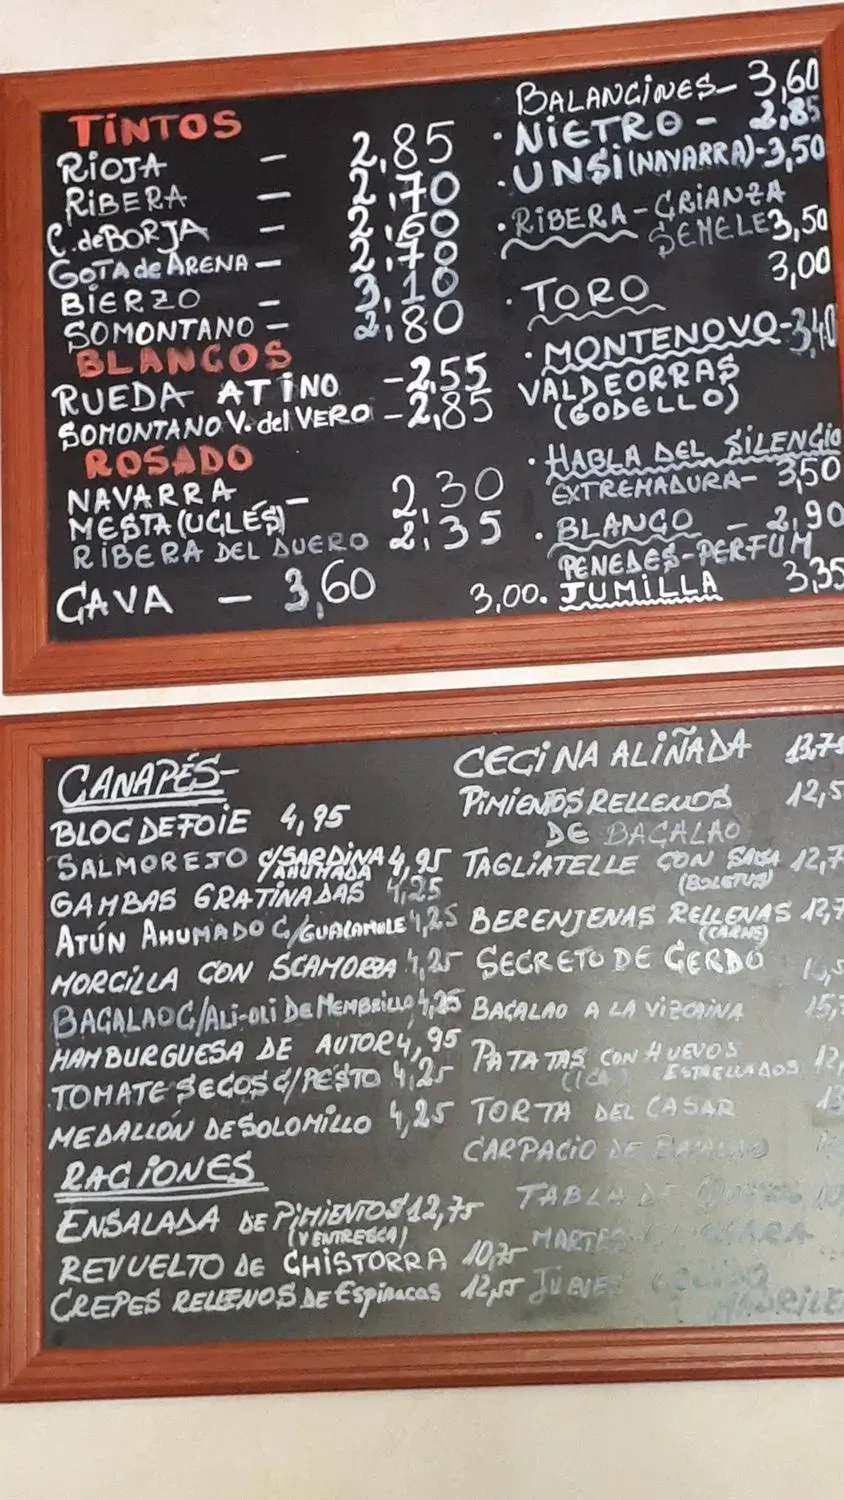 TINTOS
RIOJA – 2,85
RIBERA – 2,70
C. de BORJA – 2,60
GOTA de ARENA – 2,70
BIERZO – 3,10
SOMONTANO – 2,80
BLANCOS
RUEDA ATINO – 2,55
SOMONTANO V. del VERO – 2,85
ROSADO
NAVARRA – 2,30
MESTA (UCLÉS) 2,35
RIBERA DEL DUERO
CAVA – 3,60
BALANCINES – 3,60
· NIETRO – 2,85
· UNSI (NAVARRA) – 3,50
· RIBERA – CRIANZA
SEMELE 3,50
3,00
· TORO
· MONTENOVO – 3,40
VALDEORRAS
(GODELLO)
· HABLA DEL SILENCIO
EXTREMADURA – 3,50
· BLANCO – 2,90
PENEDES – PERFUM
3,00. JUMILLA 3,35
CANAPÉS –
BLOC DE FOIE 4,95
SALMOREJO C/SARDINA AHUMADA 4,95
GAMBAS GRATINADAS 4,25
ATÚN AHUMADO C/GUACAMOLE 4,25
MORCILLA CON SCAMORZA 4,25
BACALAO C/ALI-OLI DE MEMBRILLO 4,25
HAMBURGUESA DE AUTOR 4,95
TOMATE SECOS C/PESTO 4,25
MEDALLÓN DE SOLOMILLO 4,25
RACIONES
ENSALADA DE PIMIENTOS 12,75
(VENTRESCA)
REVUELTO DE CHISTORRA 10,75
CREPES RELLENOS DE Espinacas 12,55
CECINA ALIÑADA 13,75
PIMIENTOS RELLENOS 12,5
DE BACALAO
TAGLIATELLE CON SALSA 12,7
(BOLETUS)
BERENJENAS RELLENAS 12,7
(CARNE)
SECRETO DE CERDO
BACALAO A LA VIZCAINA 15,
PATATAS CON HUEVOS
ESTRELLADOS 12,
TORTA DEL CASAR 13
CARPACIO DE BACALAO
TABLA DE
MARTES
JUEVES COCIDO
MADRILE